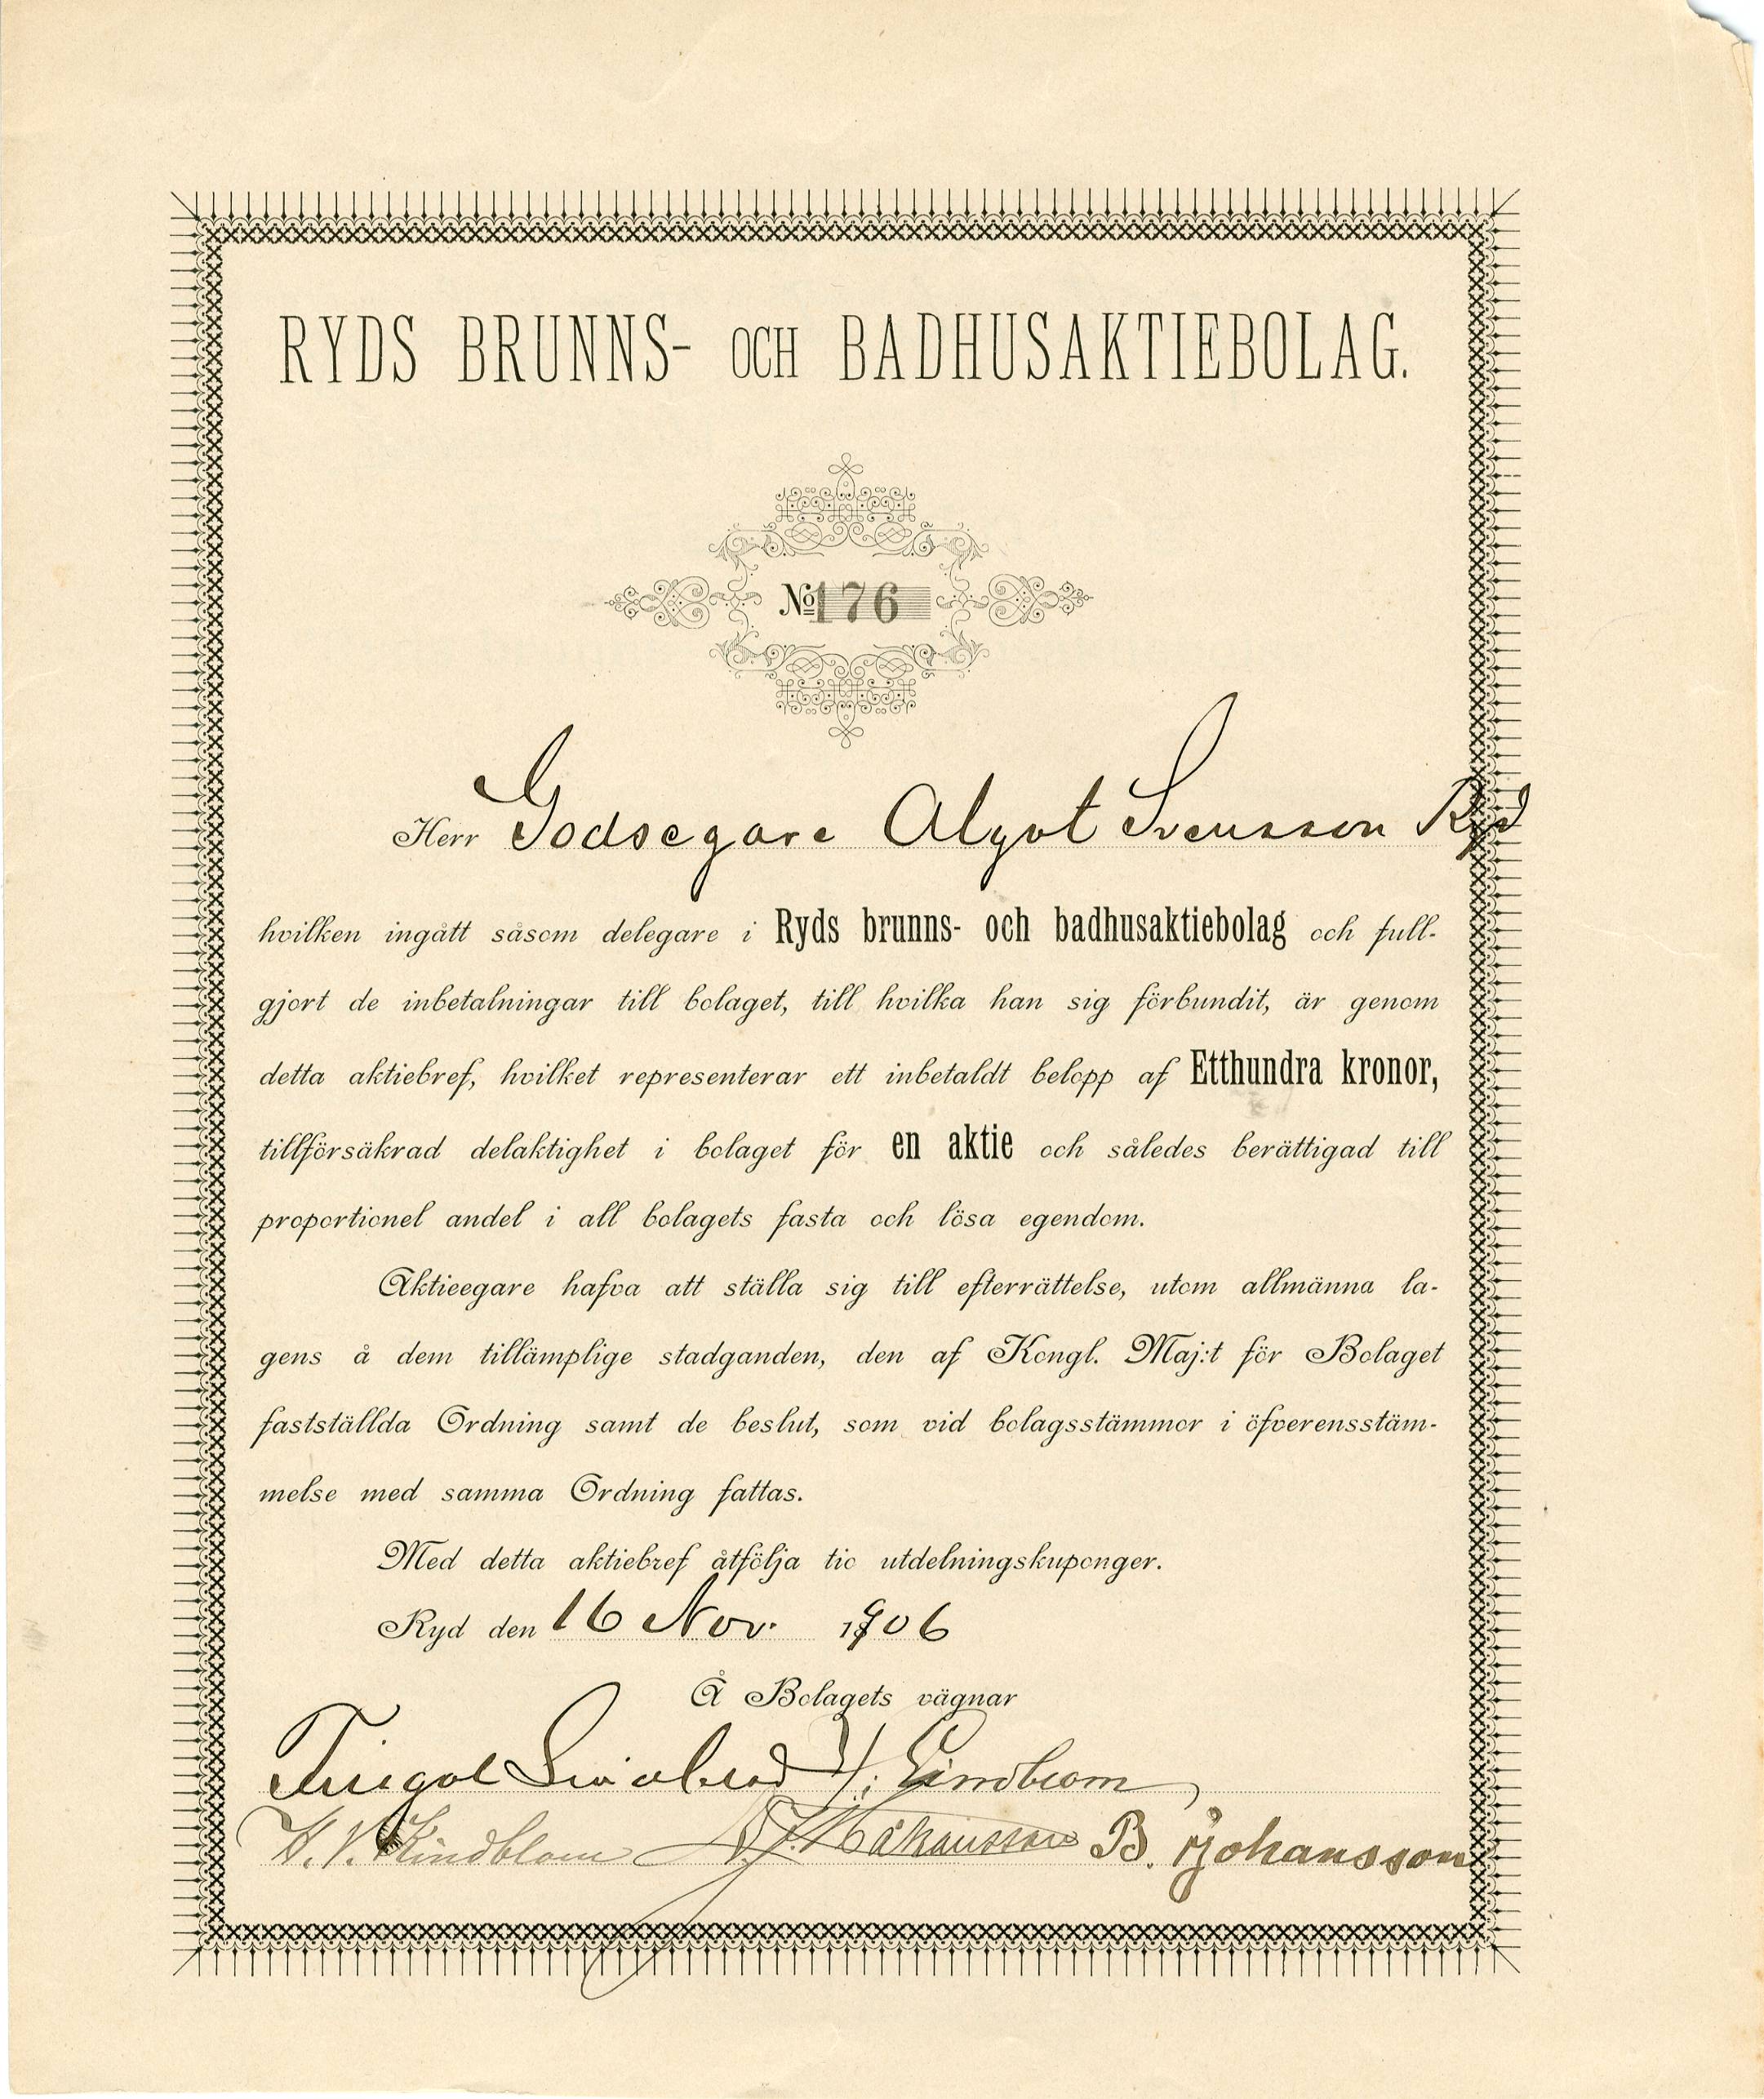 RYDS BRUNNS- OCH BADHUSAKTIEBOLAG.
No 176
Herr Godsegare Algot Svensson Ryd
hvilken ingått såsom delegare i Ryds brunns- och badhusaktiebolag och full-
gjort de inbetalningar till bolaget, till hvilka han sig förbundit, är genom
detta aktiebref, hvilket representerar ett inbetaldt belopp af Etthundra kronor,
tillförsäkrad delaktighet i bolaget för en aktie och således berättigad till
proportionel andel i all bolagets fasta och lösa egendom.
Aktieegare hafva att ställa sig till efterrättelse, utom allmänna la-
gens å dem tillämplige stadganden, den af Kongl. Maj:t för Bolaget
fastställda Ordning samt de beslut, som vid bolagsstämmor i öfverensstäm-
melse med samma Ordning fattas.
Med detta aktiebref åtfölja tio utdelningskuponger.
Ryd den 16 Nov. 1906
Å Bolagets vägnar
Lindblom
K. V. Lindblom Håkansson B. Johansson